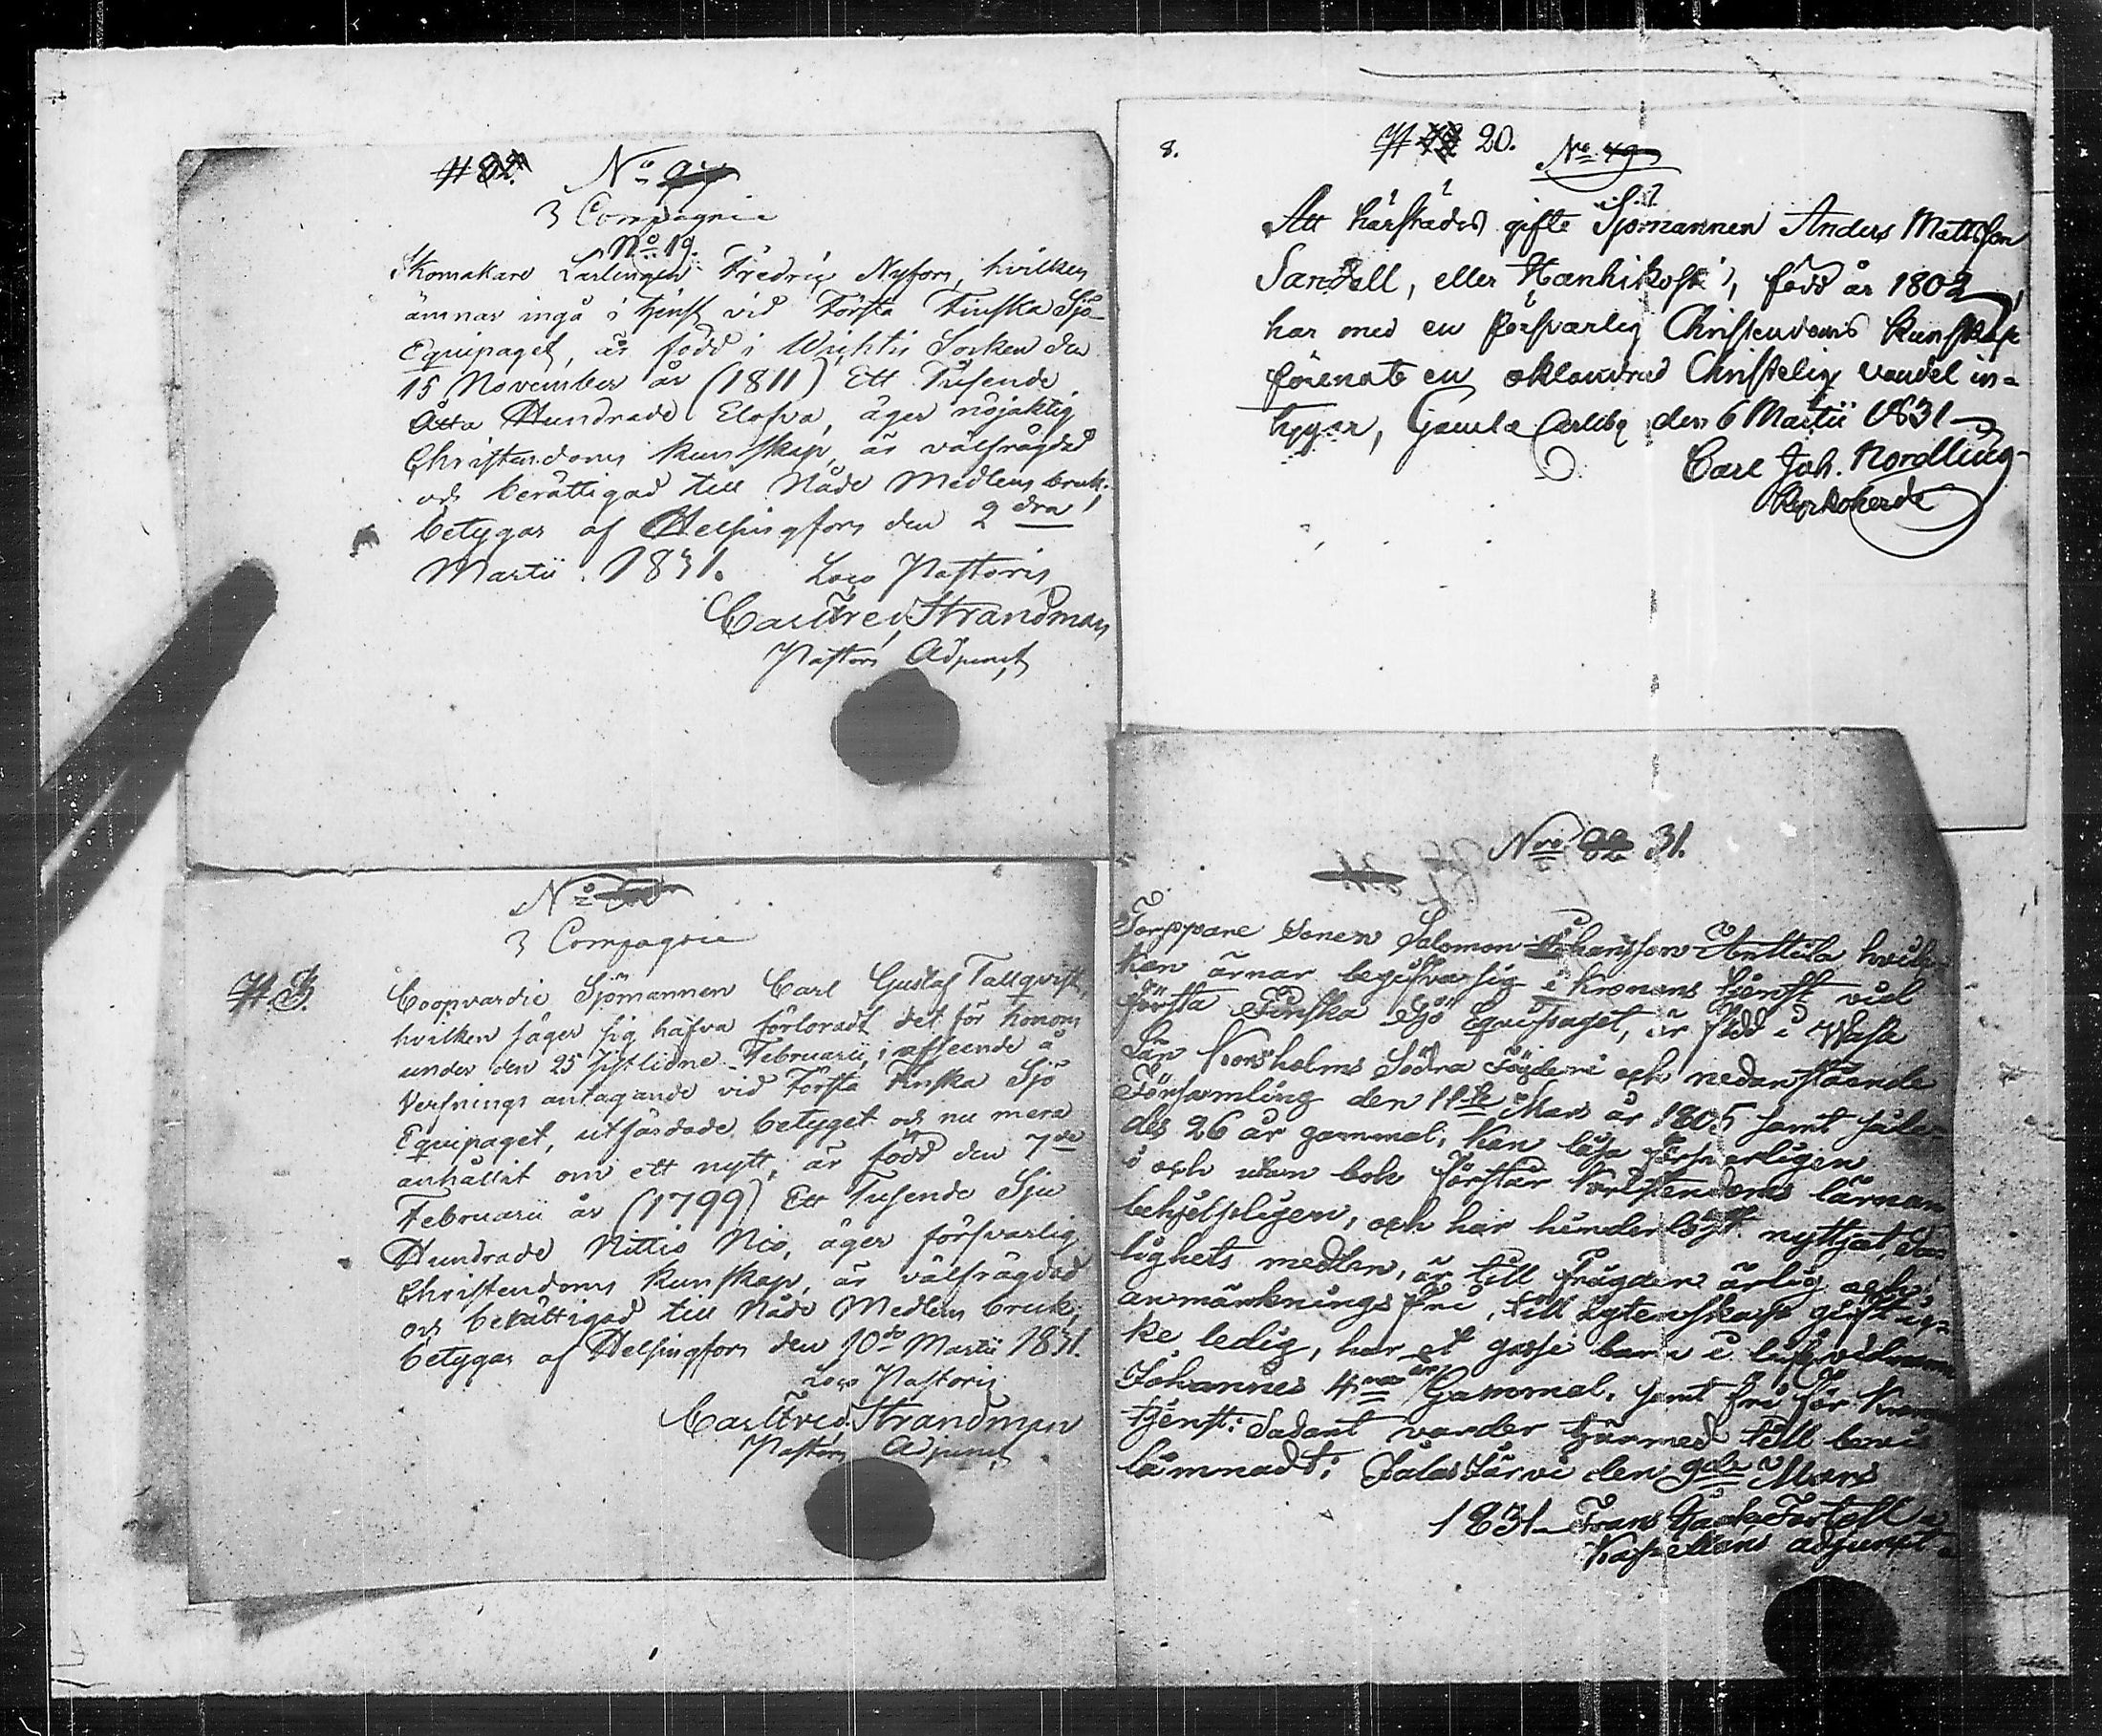 # 82. No 97
3 Compagnie
No 19.
Skomakare Lärlingen Fredric Nyfors, hvilken
ämnar ingå i tjenst vid Första Finska Sjö-
Equipaget, är född i Wichtis Socken den
15 November år (1811) Ett Tusende
Åtta Hundrade Elofva, äger nöjaktig
Christendoms kunskap, är välfrägdad
och berättigad till Nåde Medlens bruk;
betygas af Helsingfors den 2dra
Martii 1831. Loco Pastoris
Carl Fred. Strandman
Pastors Adjunct
No
3 Compagnie
Coopvardie Sjömannen Carl Gustaf Tallqvist,
hvilken säger sig hafva förloradt det för honom
under den 25 sistlidne Februarii, i afseende å
Verfnings antagande vid Första Finska Sjö
Equipaget, utfärdade betyget och nu mera
anhållit om ett nytt, är född den 7de
Februarii år (1799) Ett Tusende Sju
Hundrade Nittio Nio, äger försvarlig
Christendoms kunskap, är välfrägdad
och berättigad till Nåde Medlens bruk;
betygas af Helsingfors den 10de Martii 1831.
Loco Pastoris
Carl Fred. Strandman
Pastors Adjunct
8. # 20. No 49
Att härstädes gifte Sjömannen Anders Mattsson
Sandell, eller Hanhikoski, född år 1802,
har med en försvarlig Christendoms kunskap
förenat en oklandrad Christelig vandel in-
tygar, Gamla Carleby den 6 Martii 1831
Carl Joh. Nordling
Kyrkoherde
Nro 82 31.
Torppare sonen Salomon Johansson Anttila hvil-
ken ärnar begifva sig i Kronans tjenst vid
första Finska Sjö Equipaget, är född i Wasa
Län Korsholms Södra Fögderi och nedanstående
Församling den 11te Mars år 1805 samt såle-
des 26 år gammal; kan läsa försvarligen
i och utan bok förstår kristendoms lärnan
behjelpligen, och har hinderlöst nyttjat Sa-
lighets medlen, är till frägden ärlig och
anmärkningsfri, till ägtenskap gift ic-
ke ledig, har et gosse barn i lifvet vid namn
Johannes 4ra år Gammal, samt fri för Krono
tjenst: Sådant varder härmed till bevis
lämnadt: Jalasjärvi den 9de Mars
1831 Frans
Kapellans adjunct